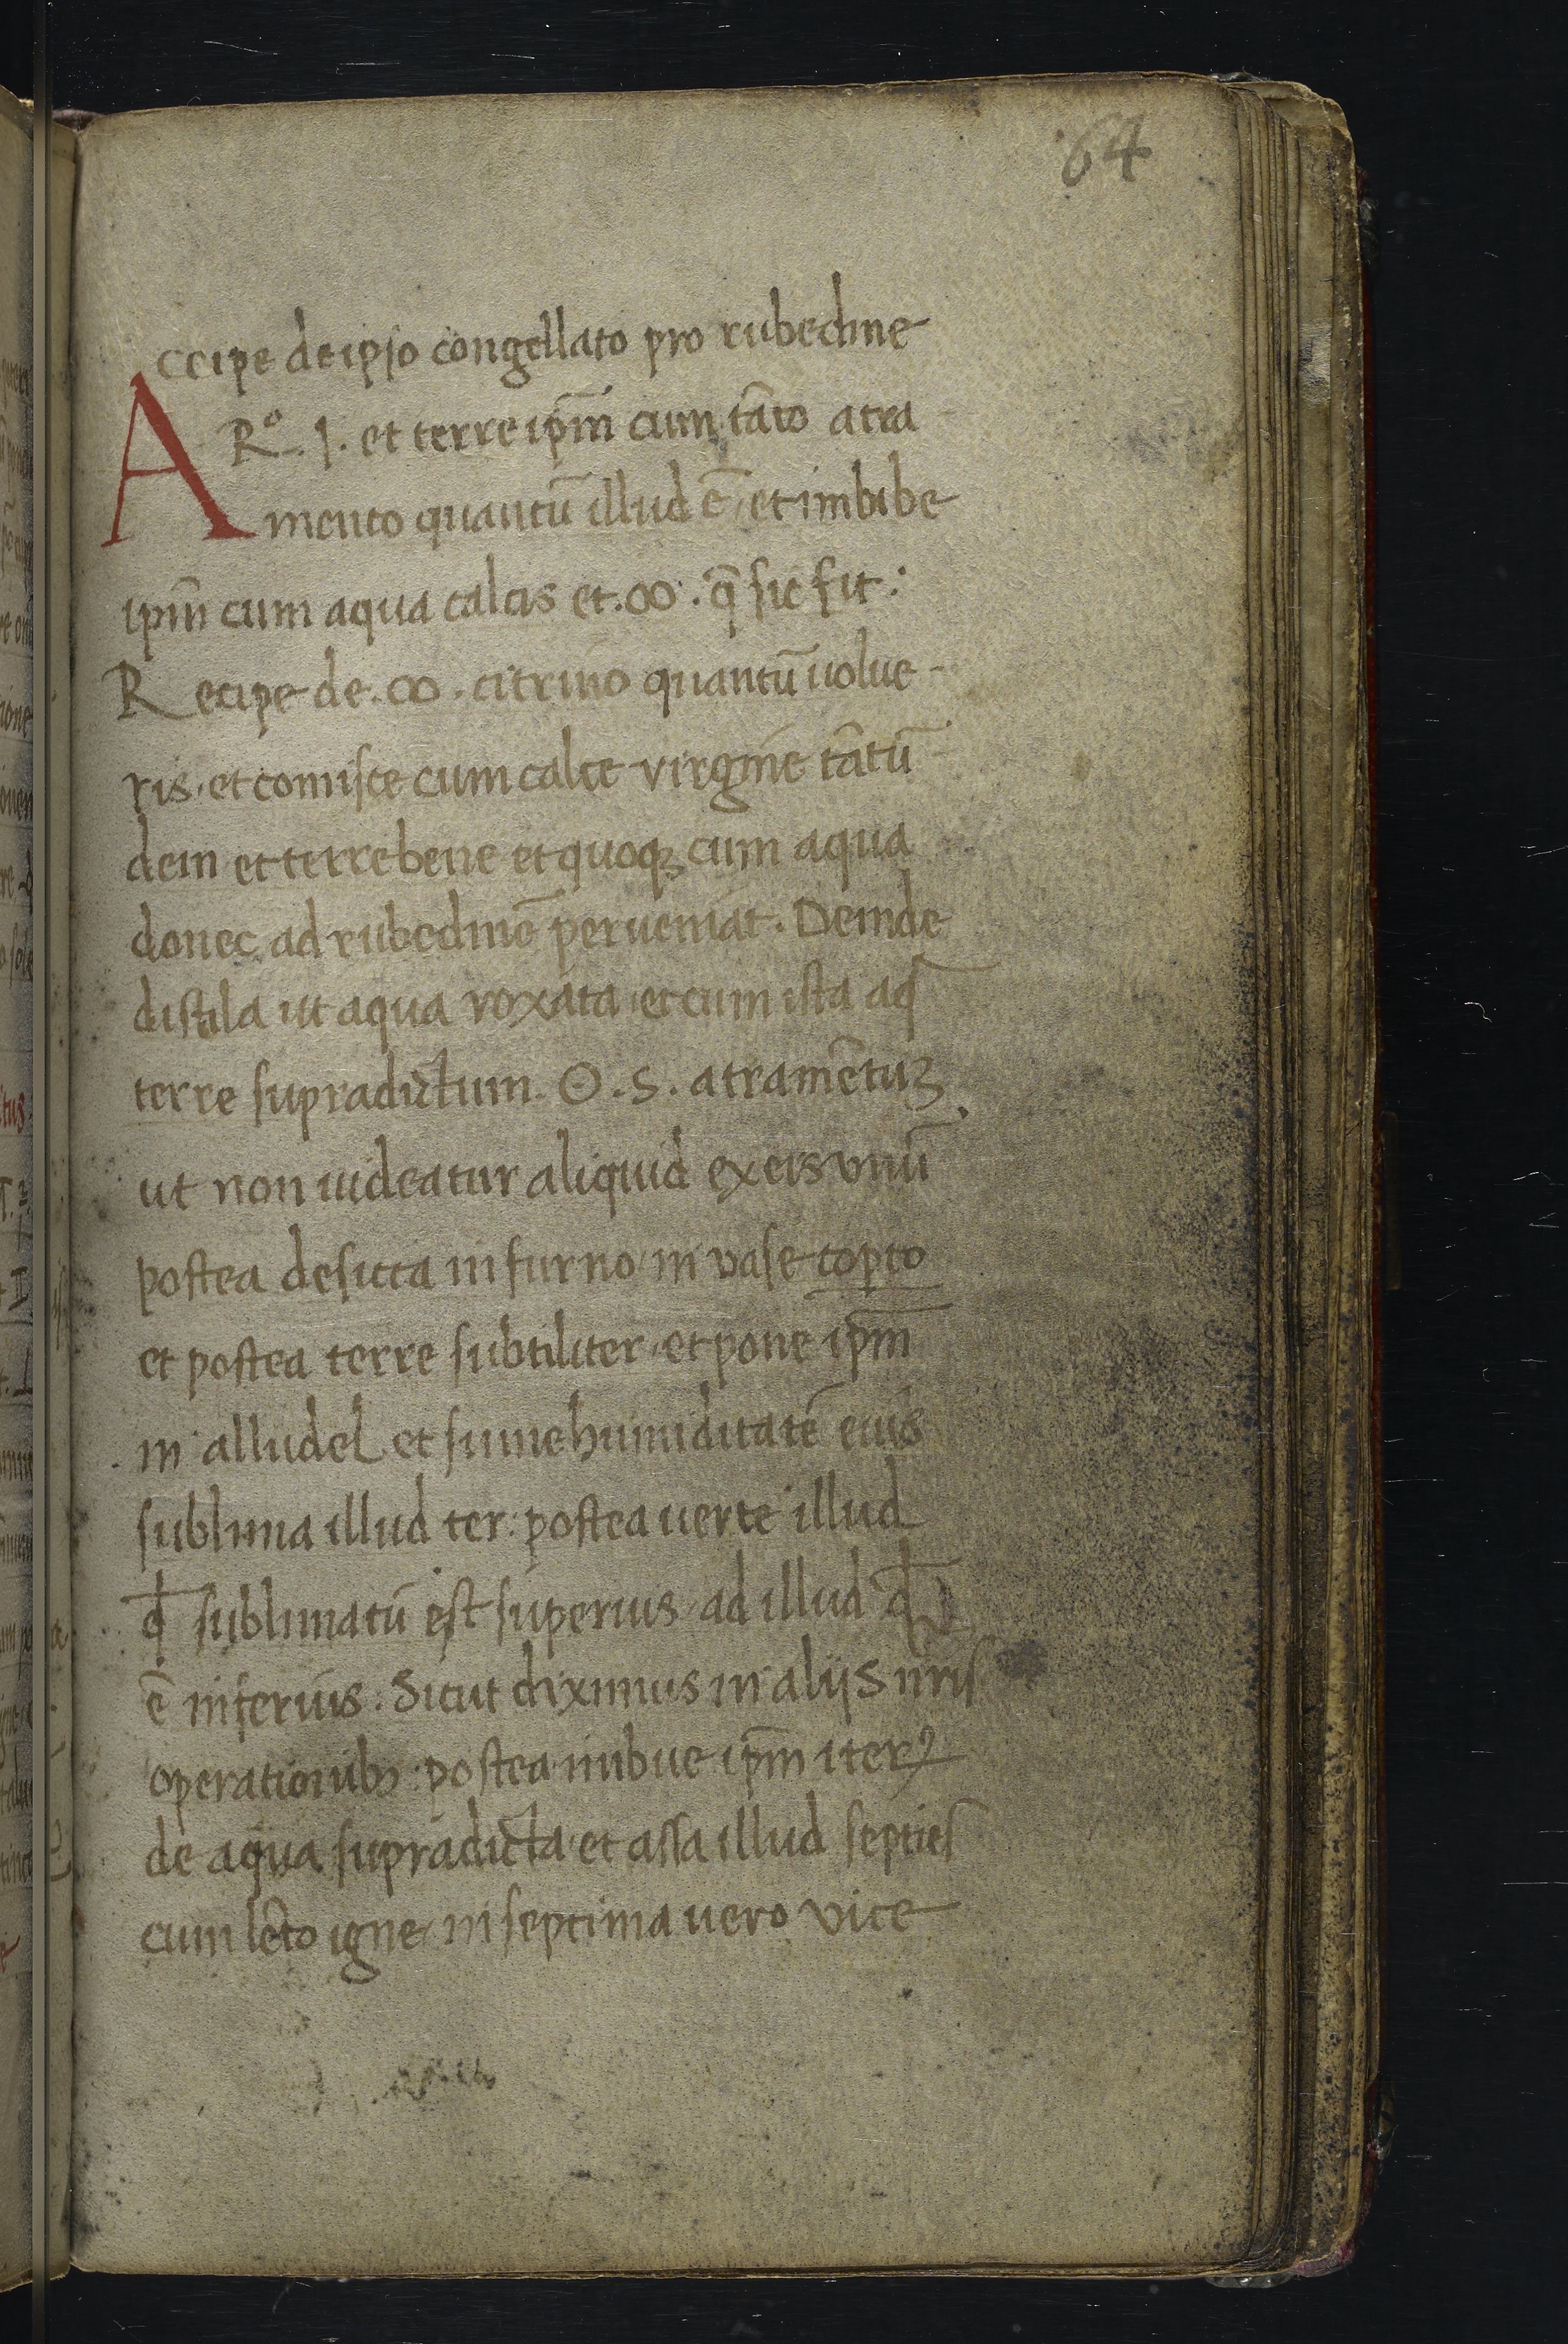 64
Accipe de ipso congellato pro rubedine
Rͦ. J. et terre ip̄m cum tāto atra-
mento quantū illud ē, et imbibe
ip̄m cum aqua calcis et .∞. q̄ sic fit:
Recipe de .∞. citrino quantū uolue-
ris, et comisce cum calce virgine tātū-
dem et terre bene et quoqꝫ cum aqua
donec ad rubedinē perueniat. Deinde
distila ut aqua roxata et cum ista aq̄
terre supradictum. O. S. atramētuꝫ,
ut non uideatur aliquid ex eis unū
postea desicca in furno in vase copto
et postea terre subtiliter, et pone ip̄m
in alludel et sume humiditatē eius
sublima illud ter: postea uerte illud
qđ sublimatū est superius, ad illud qđ
ē inferius. Sicut diximus in alijs nr̄is
operationibꝫ: postea imbue ip̄m iterꝰ
de aqua supradicta et assa illud septies
cum lēto igne, in septima uero vice